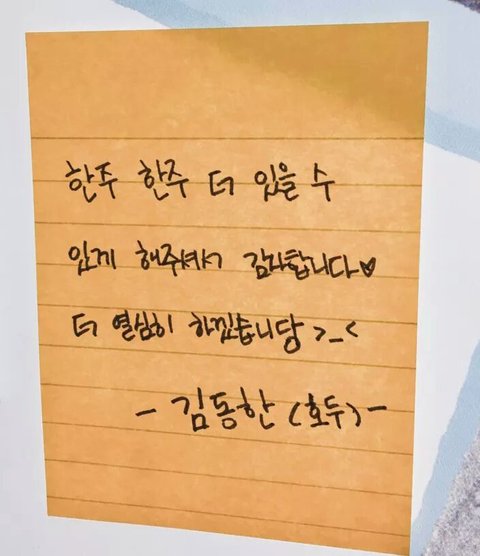 한주 한주 더 있을 수
있게 해주셔서 감사합니다♥
더 열심히 하겠습니당 >_<
- 김동한 (호두) -